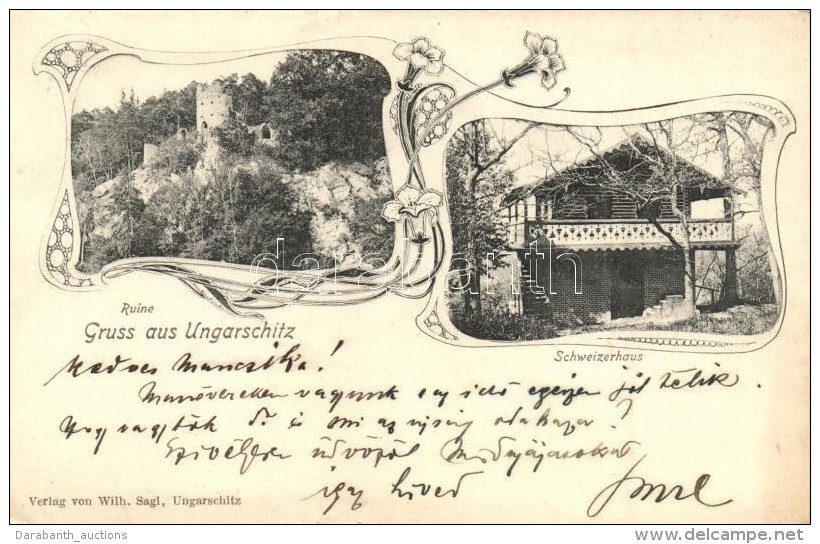 Ruine
Gruss aus Ungarschitz
Schweizerhaus
darabanth
Kedves Mancsika!
Manőverek vagyunk az idő egészen jól telik.
Hogy vagytok ti és mi az ujság odahaza?
Szivélyesen üdvözöl Mindnyájatokat
igaz hived
Verlag von Wilh. Sagl, Ungarschitz
Darabanth_auctions
www.delcampe.net